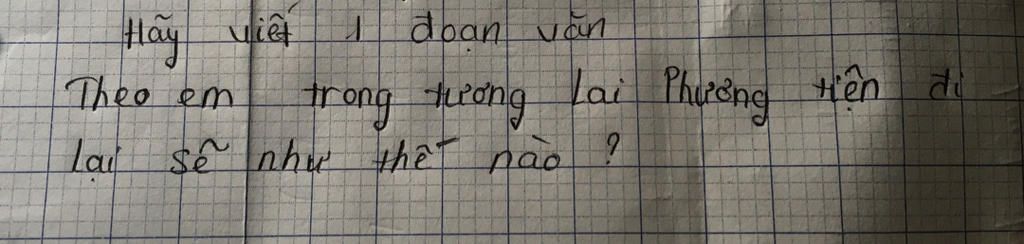 Hãy viết 1 đoạn văn
Theo em trong tương lai Phương tiện đi
lại sẽ như thế nào ?